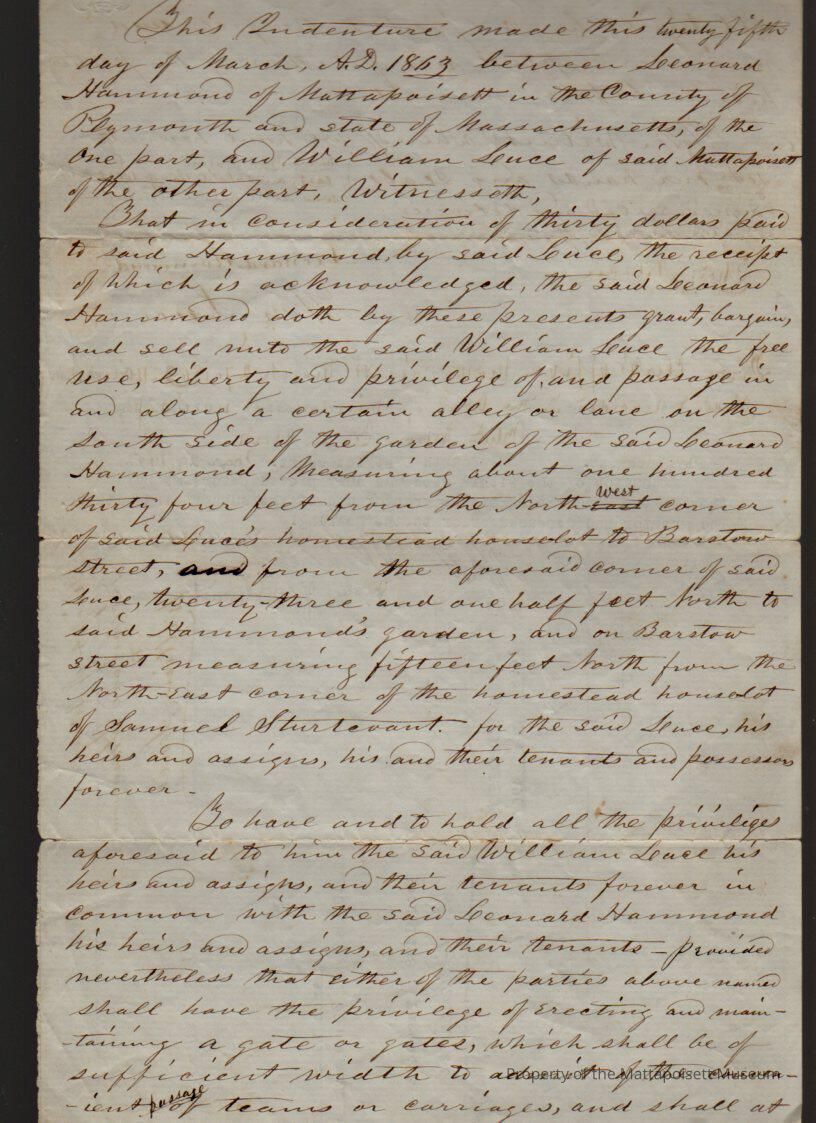 This Indenture made this twenty fifth
day of March, A.D. 1863 between Leonard
Hammond of Mattapoisett in the County of
Plymouth and state of Massachusetts, of the
one part, and William Luce of said Mattapoisett
of the other part, Witnesseth,
That in consideration of thirty dollars paid
to said Hammond, by said Luce, the receipt
of which is acknowledged, the said Leonard
Hammond doth by these presents grant, bargain,
and sell unto the said William Luce the free
use, liberty and privilege of, and passage in
and along a certain alley or lane on the
south side of the garden of the said Leonard
Hammond; Measuring about one hundred
thirty four feet from the North-east west corner
of said Luce's homestead houselot to Barstow
street, and from the aforesaid corner of said
Luce, twenty-three and one half feet North to
said Hammond's garden, and on Barstow
street measuring fifteen feet North from the
North-East corner of the homestead houselot
of Samuel Sturtevant. for the said Luce, his
heirs and assigns, his and their tenants and possessors
forever -
To have and to hold all the priviliges
aforesaid to him the said William Luce his
heirs and assigns, and their tenants forever in
common with the said Leonard Hammond
his heirs and assigns, and their tenants - provided
nevertheless that either of the parties above named
shall have the privilege of erecting and main-
-taining a gate or gates, which shall be of
sufficient width to admit of the
-ient passage of teams or carriages, and shall at
Property of the Mattapoisett Museum